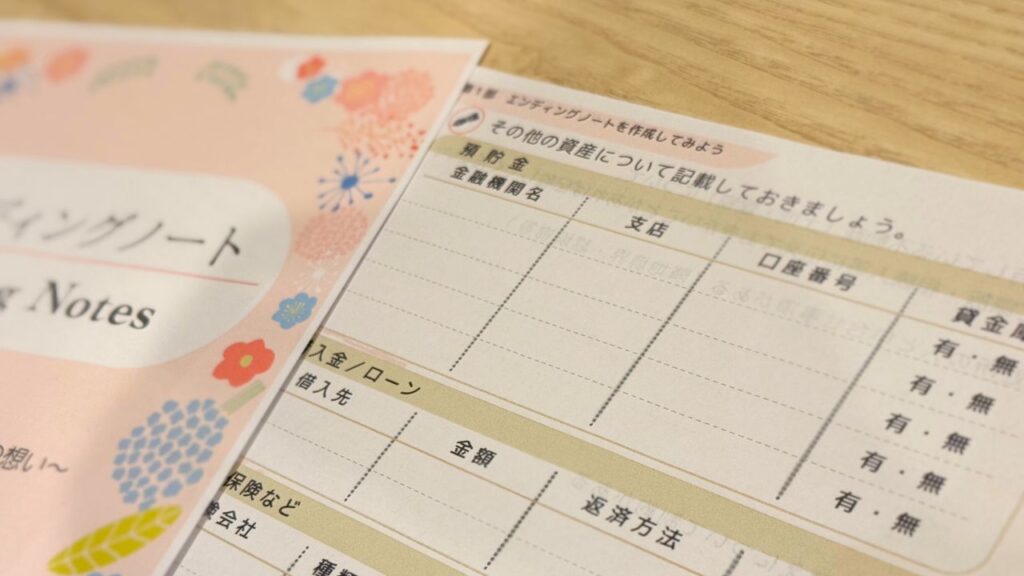 ディングノート
g Notes
想い～
第1部 エンディングノートを作成してみよう
その他の資産について記載しておきましょう。
預貯金
金融機関名 支店 口座番号 貸金庫
有・無
有・無
有・無
有・無
有・無
入金／ローン
借入先 金額 返済方法
保険など
険会社 種類